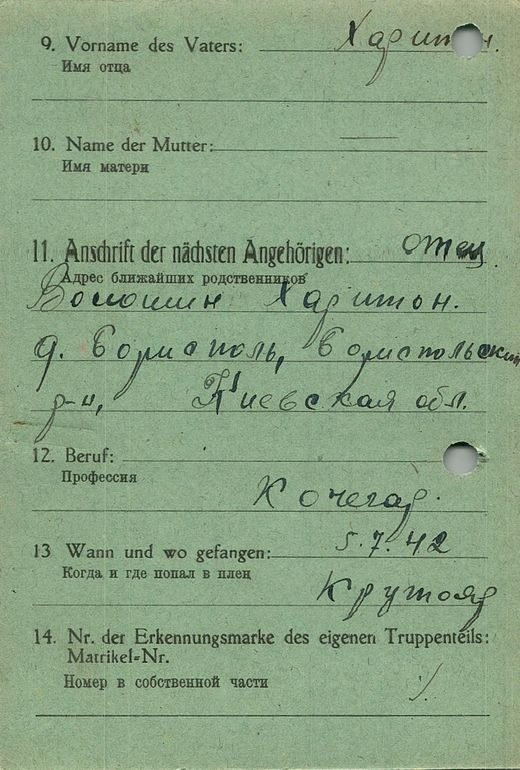 9. Vorname des Vaters: Харитон.
Имя отца
10. Name der Mutter: —
Имя матери
11. Anschrift der nächsten Angehörigen: отец
Адрес ближайших родственников
Волошин Харитон.
д. Борисполь, Бориспольский
р-н, Киевская обл.
12. Beruf:
Профессия
Кочегар.
13 Wann und wo gefangen: 5.7.42
Когда и где попал в плен
Крутояр
14. Nr. der Erkennungsmarke des eigenen Truppenteils:
Matrikel-Nr.
Номер в собственной части ./.